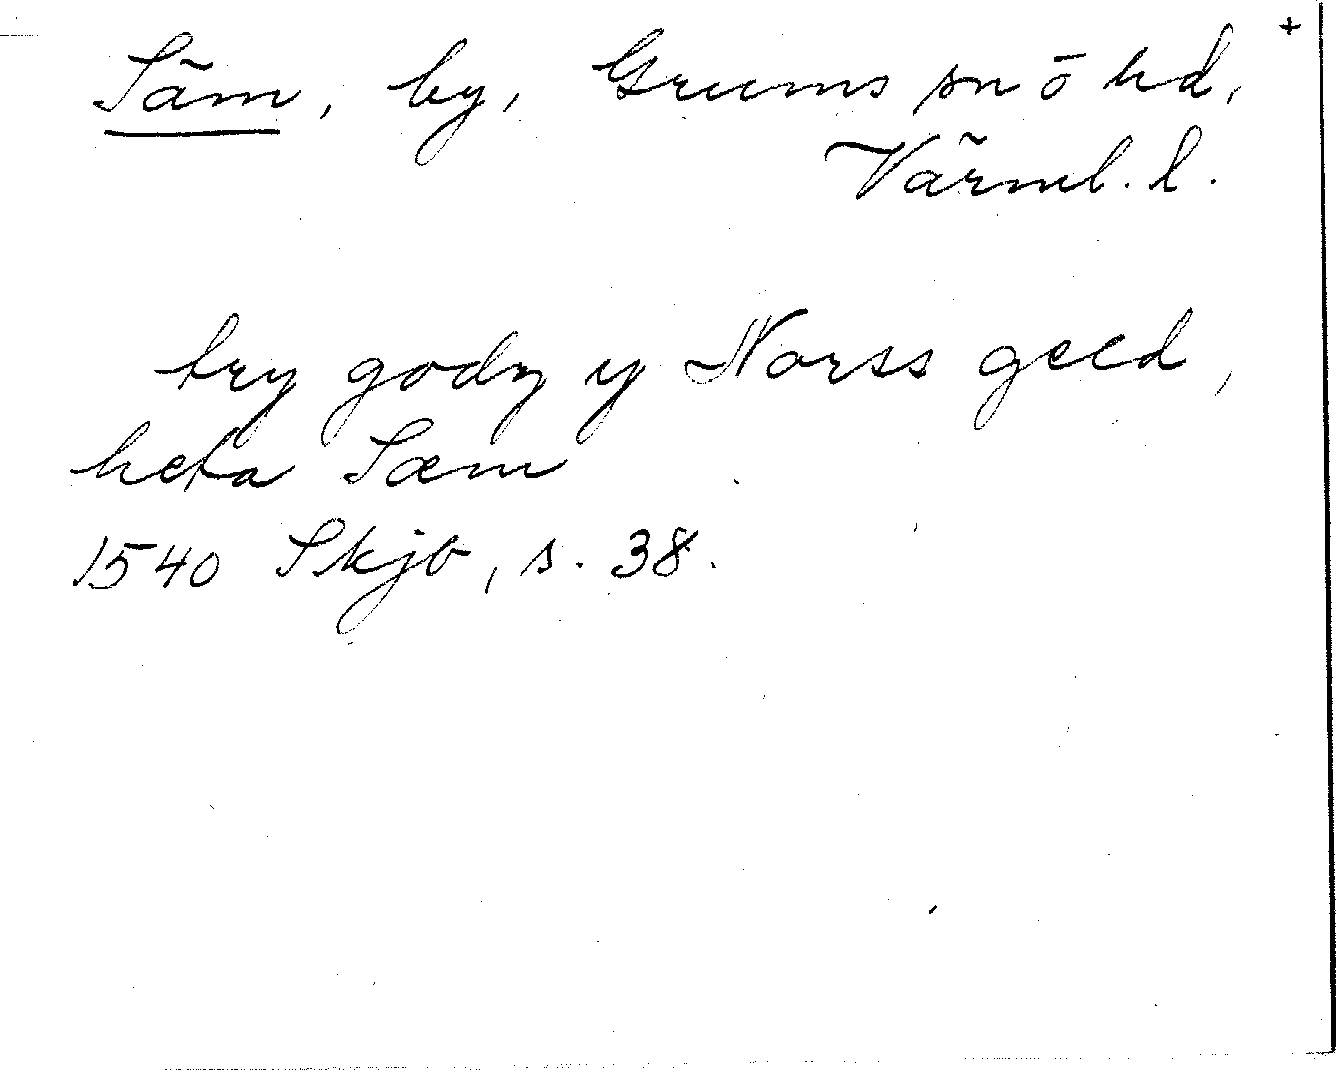 +
Säm, by, Grums sn ō hd,
Värml. l.
try godz y Norss geld,
heta Sæm
1540 Skjb, s. 38.